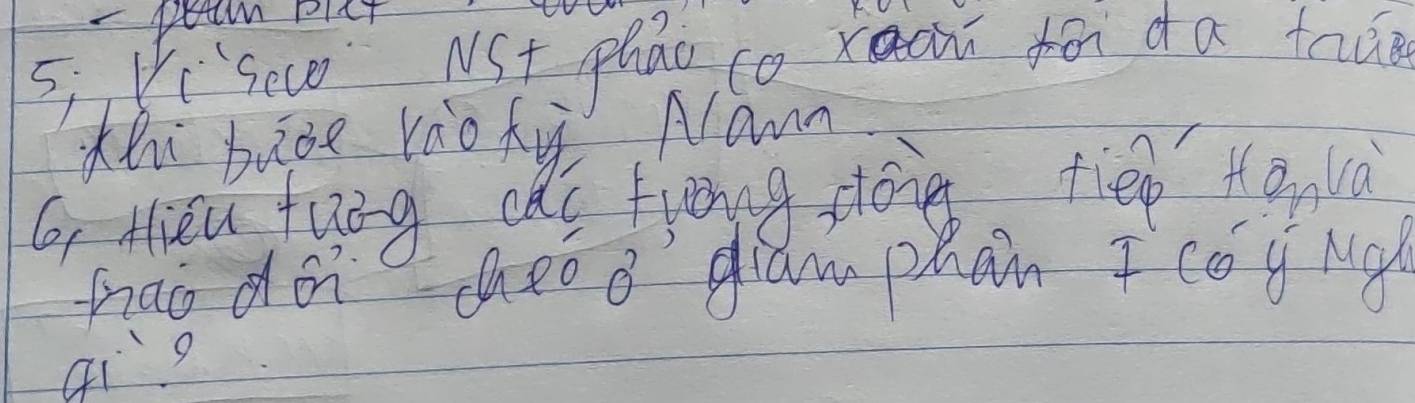 - phân biệt
5, Vì sao NST phải co xoắn tối đa trước
khi bước vào kỳ
6, Hiện tượng các tương đồng tiếp hợp và
trao đổi chéo ở giảm phân I có ý Ngh
gì?